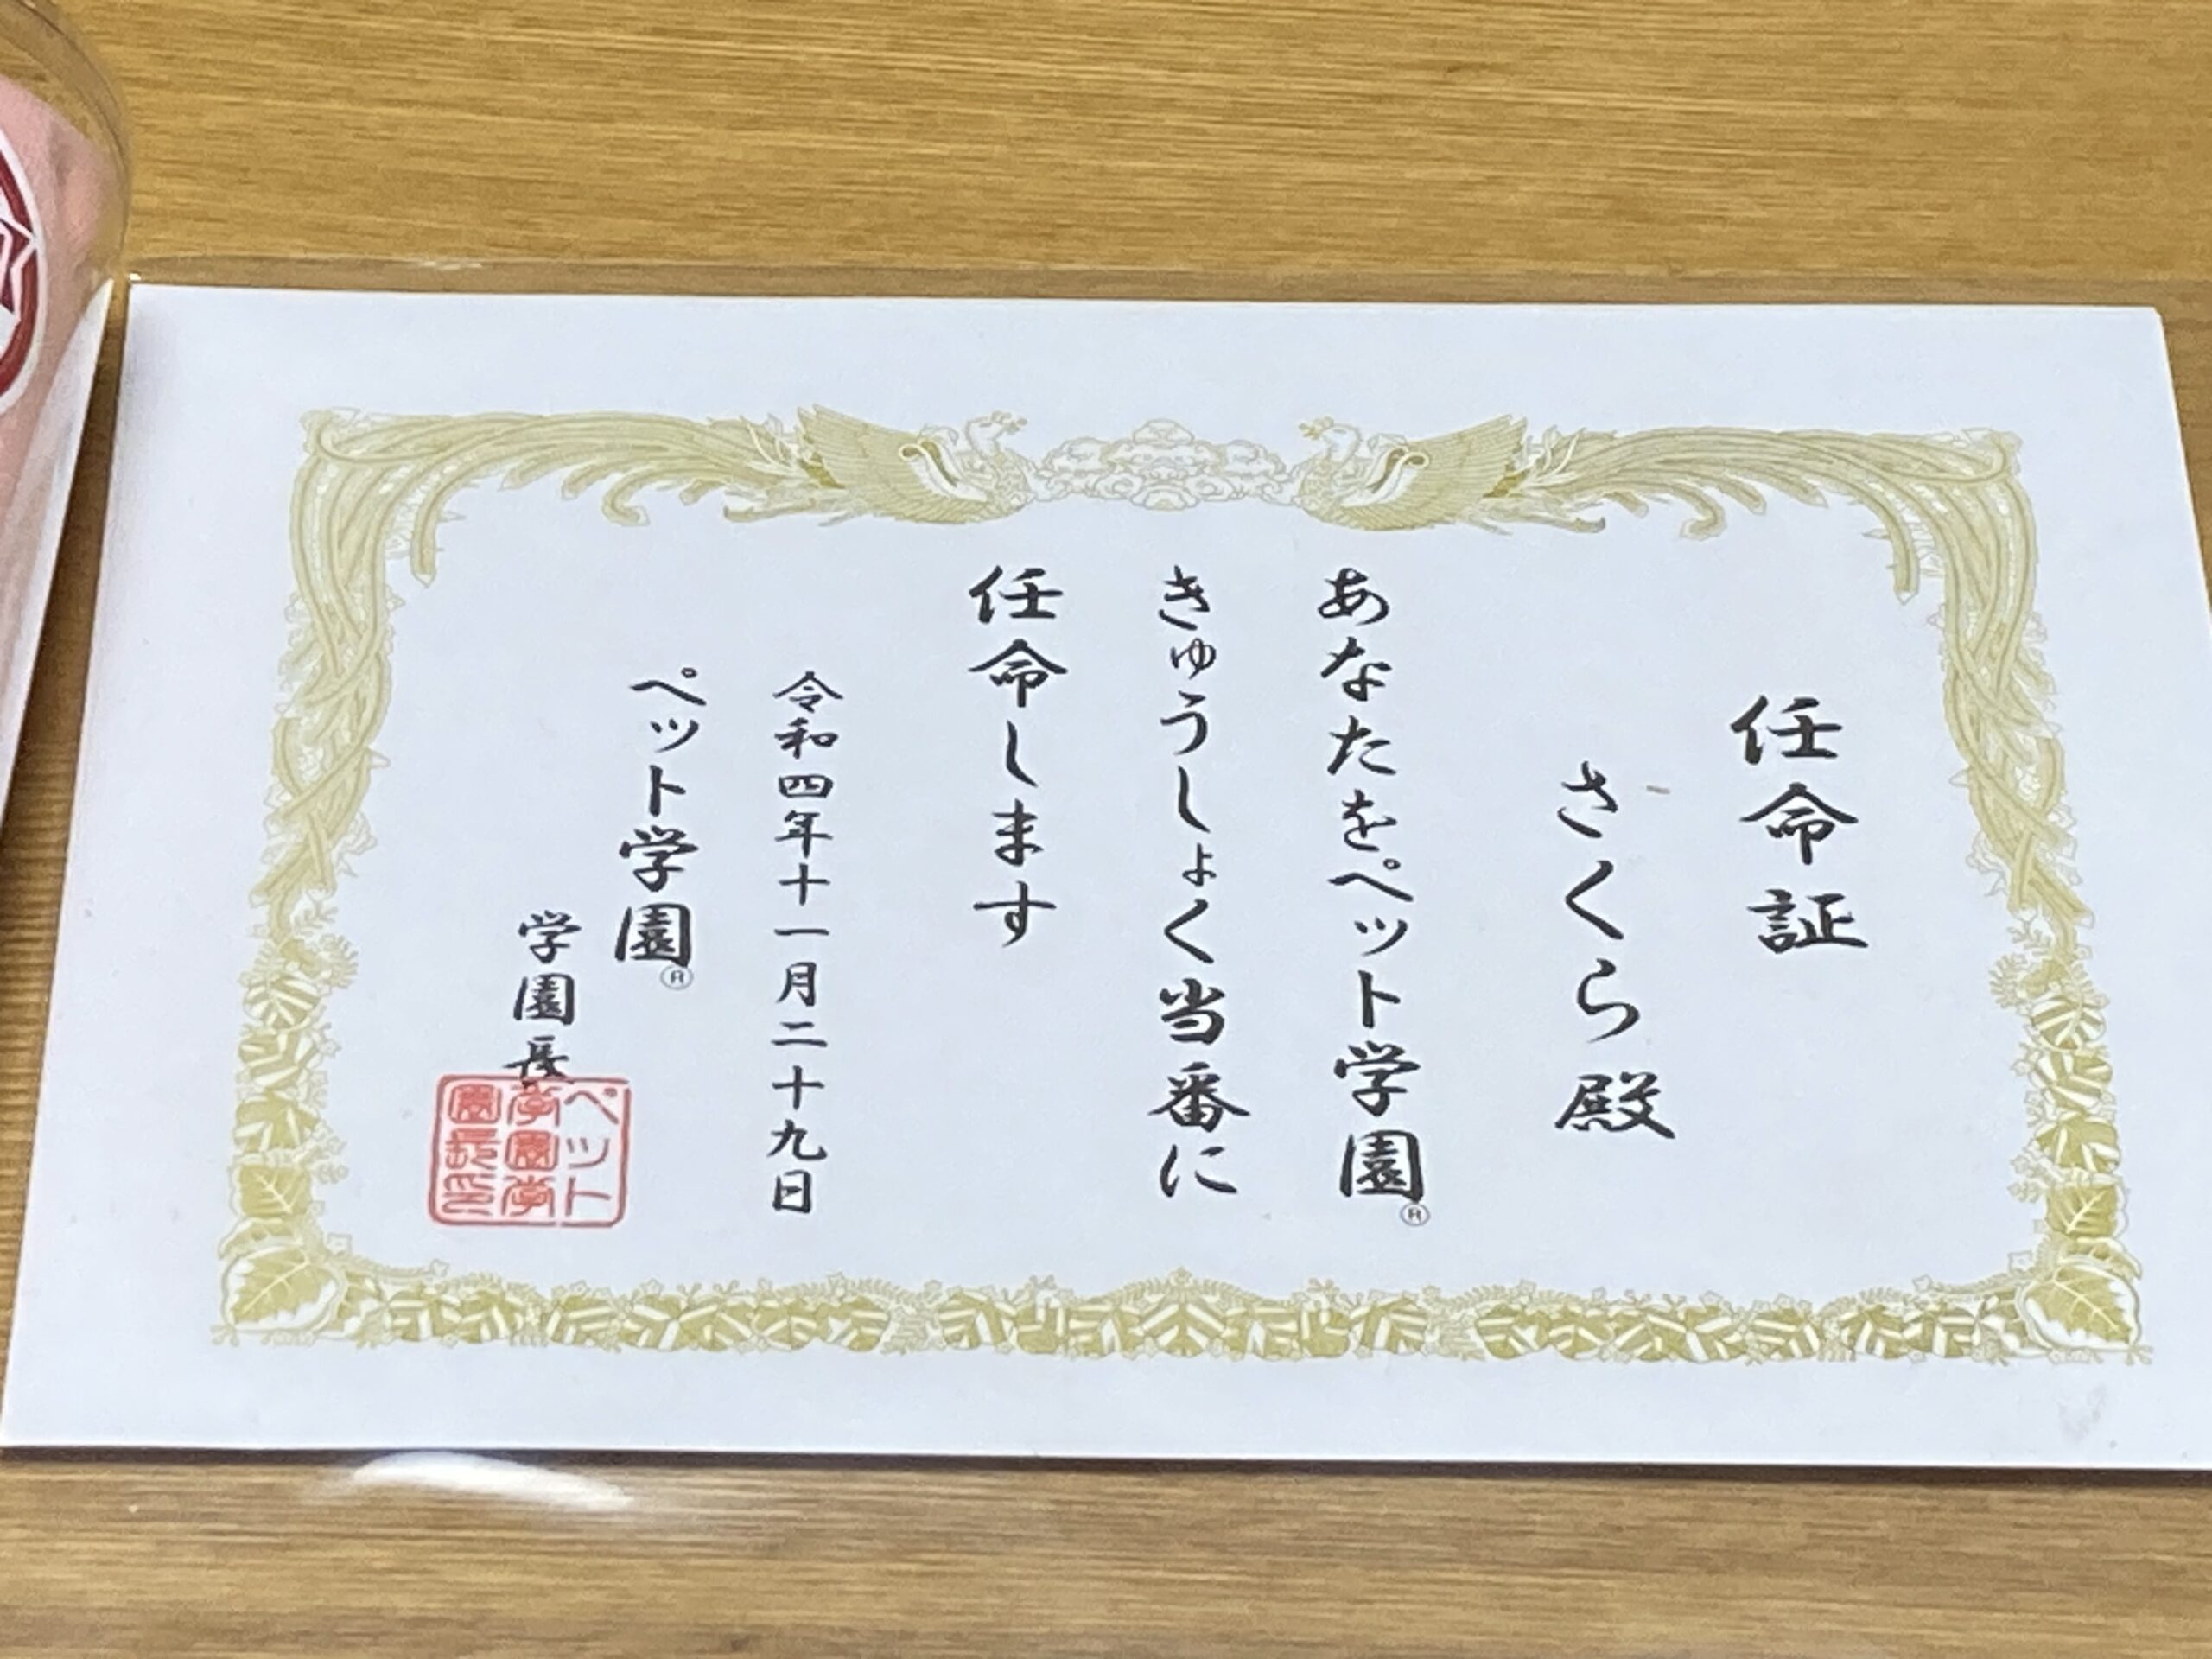 任命証
さくら殿
あなたをペット学園®
きゅうしょく当番に
任命します
令和四年十一月二十九日
ペット学園®
学園長
ペット
学園学
園長印